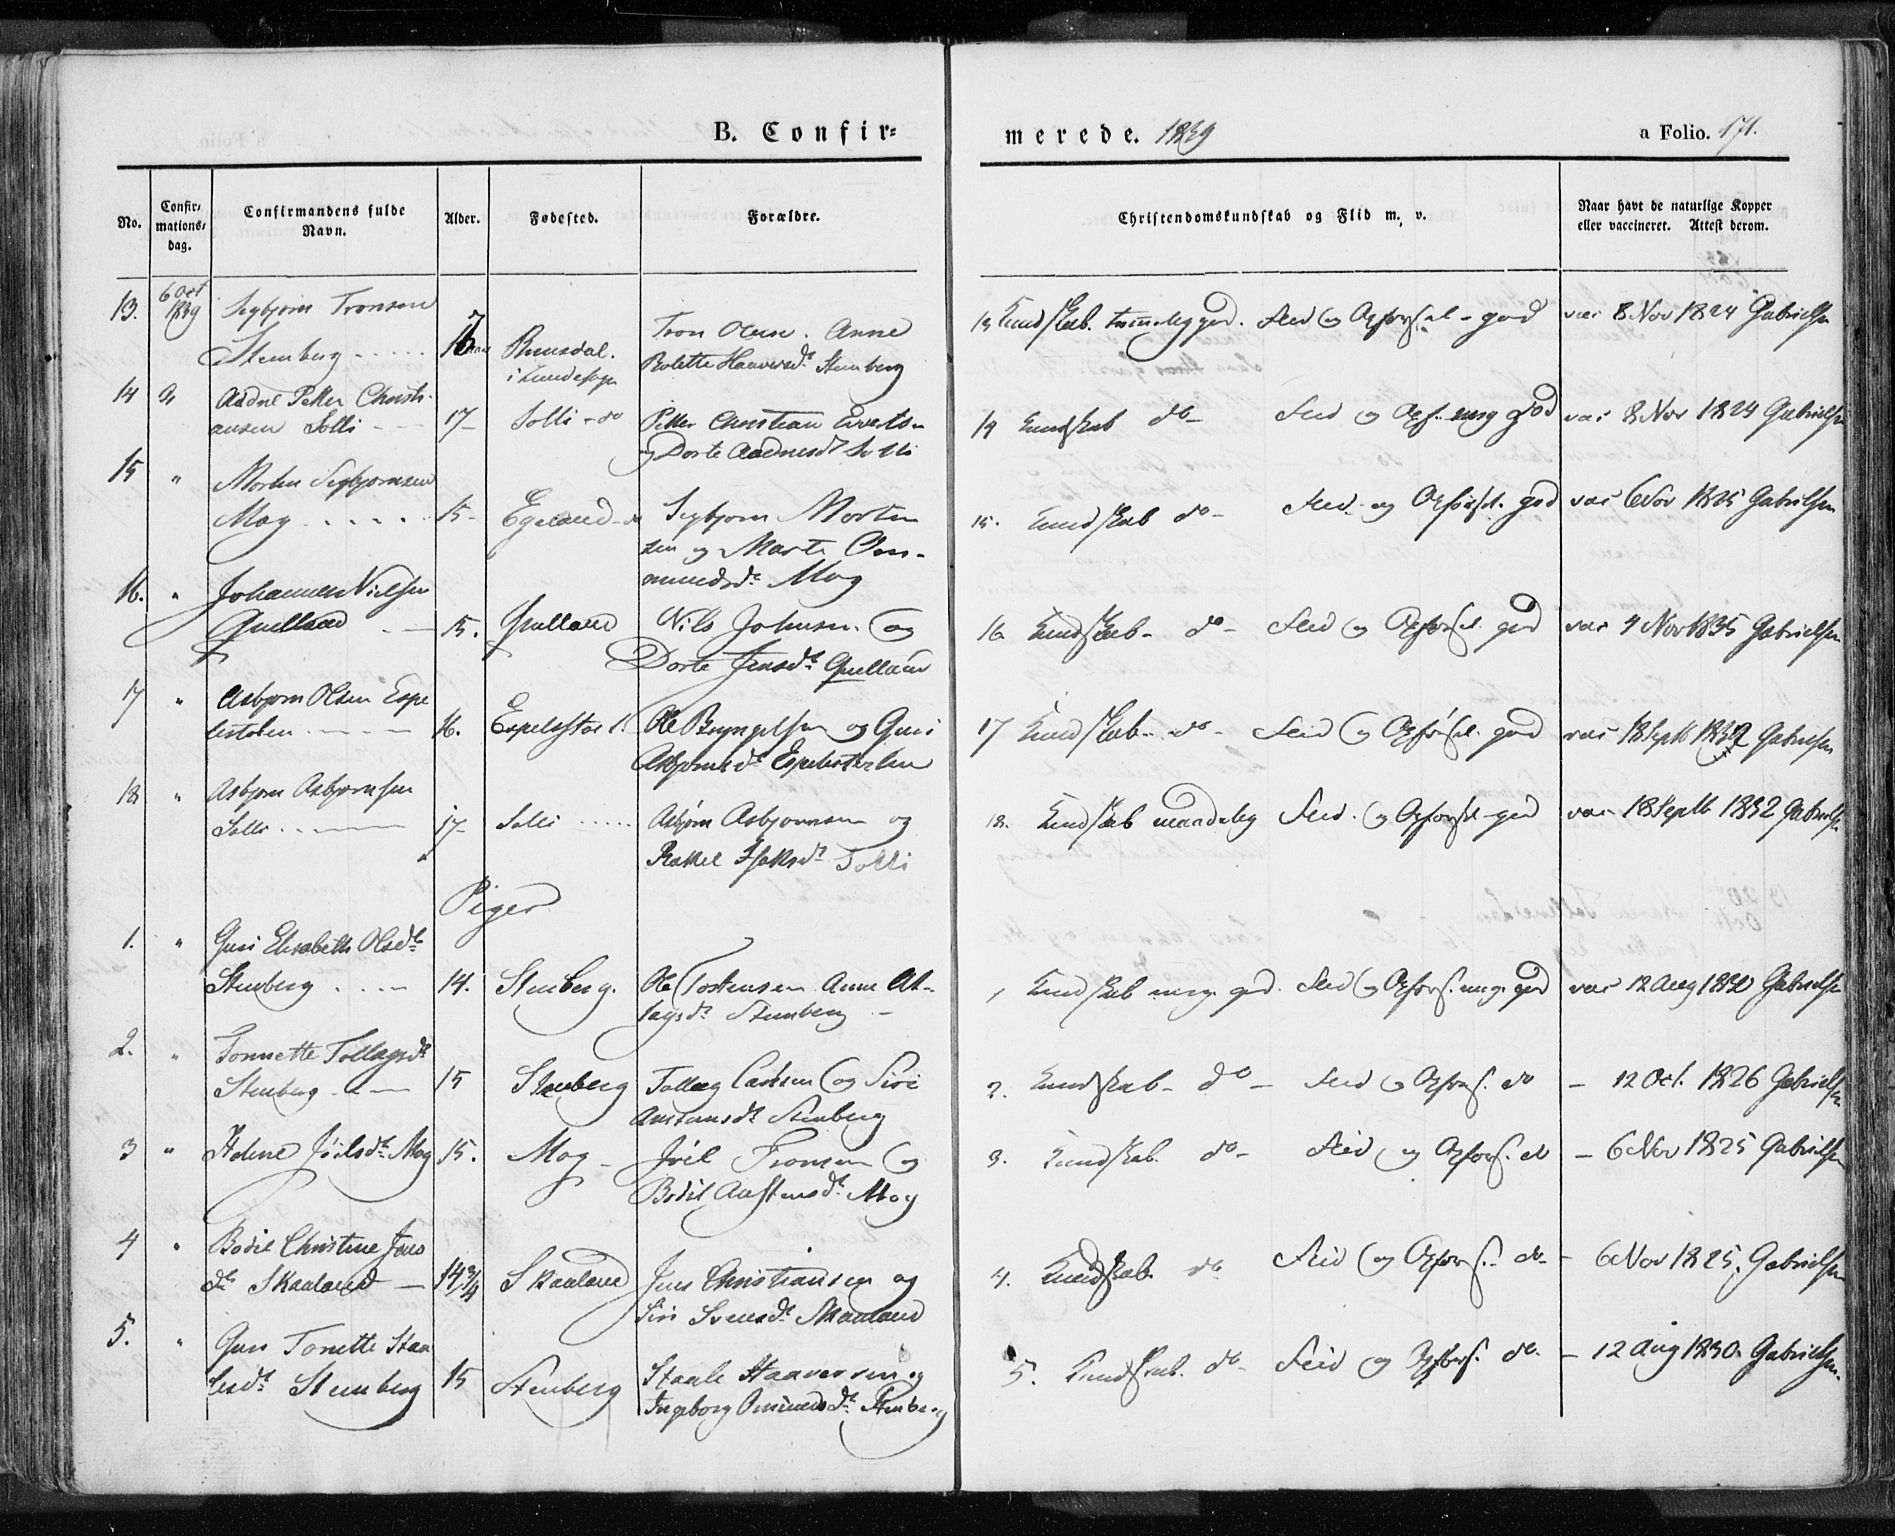 B. Confir=
merede. 1839
a Folio. 171.
No.
Confir=
mations=
dag.
Confirmandens fulde
Navn.
Alder.
Fødested.
Forældre.
Christendomskundskab og Flid m. v.
Naar havt de naturlige Kopper
eller vaccineret. Attest derom.
13. 6 Oct 1839 Sigbjørn Tronsen
Stenberg
i Lundesogn
Tron Olsen. Anne
Bolette Haaversd. Stenberg
13 Kundskab. temmelig god. Flid og Opførsel god
vac 8 Nov 1824 Gabrielsen
14 Aadne Petter Christi-
ansen Solli
17
Solli - do
Petter Christian
og Dorte Aadnesd. Solli
14 Kundskab do Flid og Opf. meg god
vac 8 Nov 1824 Gabrielsen
15 " Morten Sigbjørnsen
Moy
15
Egeland - do
Sigbjørn Morten
sen og Marte Om-
mundsd. Moy
15. Kundskab do Flid og Opførsel. god
vac 6 Nov 1825 Gabrielsen
16. " Johannes Nielsen
Qvelland
15.
Qvelland
Nils Johnsen og
Dorte Jensd. Qvelland
16 Kundskab do Flid og Opførsel god
vac 4 Nov 1835 Gabrielsen
17 " Asbjørn Olsen Espe
lestølen
16.
Espelestøl
Ole Bryngelsen og Guri
Asbjørnsd. Espelestølen
17 Kundskab do Flid og Opførsel. god
vac 18 Sept 1832 Gabrielsen
18 " Asbjørn Asbjørnsen
Solli
17
Solli
Asbjørn Asbjørnsen og
Rakel Isaksd. Solli
18. Kundskab maadelig Flid og Opførsel god
vac 18 Septb 1832 Gabrielsen
Piger
1. " Guri Elisabeth Olsd.
Stenberg
14.
Stenberg.
Ole Tostensen Anne As-
lagsd. Stenberg
1 Kundskab meg. god. Flid og Opførs. meg. god
vac 12 Aug 1830 Gabrielsen
2. " Tonnette Tollagsd.
Stenberg
15
Stenberg
Tollag Carlsen og Siri
Austensd. Stenberg
2. Kundskab do Flid og Opførs. do
- 12 Oct. 1826 Gabrielsen
3 " Helene Joelsd. Moy
15.
Moy
Joel Tronsen og
Bodil Austensd. Moy
3. Kundskab. do Flid og Opførs. do
- 6 Nov 1825 Gabrielsen
4 " Bodil Christine Jens
d. Skaaland
14 3/4
Skaaland
Jens Christiansen og
Siri Svensd. Skaaland
4. Kundskab. do Flid og Opførs. do
- 6 Nov 1825. Gabrielsen
5. " Guri Tonette Staa
lesd. Stenberg
15
Stenberg
Staale Haaversen og
Ingeborg Ommundsd. Stenberg
5. Kundskab. do Flid og Opførs. do.
- 12 Aug 1830. Gabrielsen.